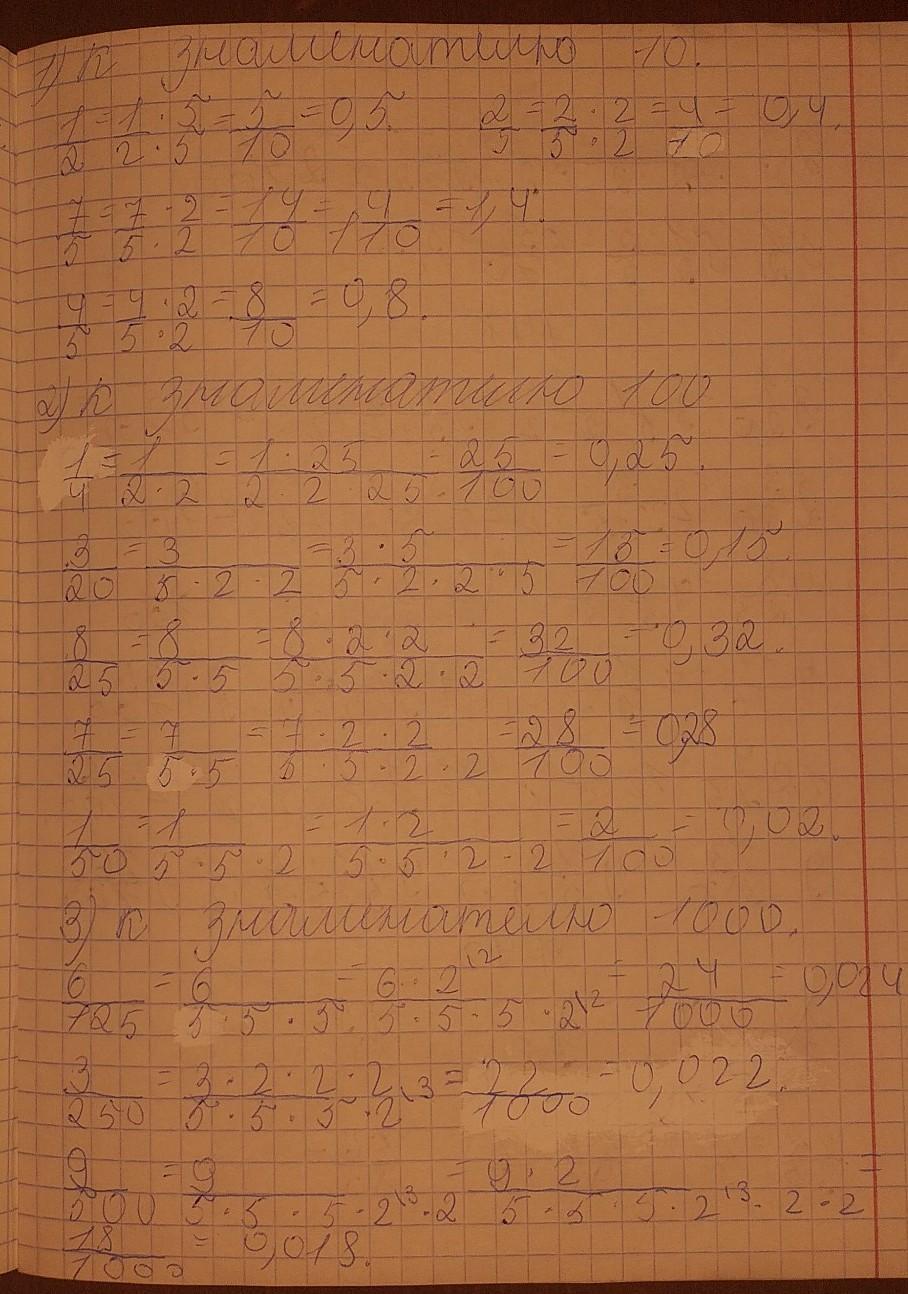 1) К знаменателю 10.
1/2 = 1·5/2·5 = 5/10 = 0,5. 2/5 = 2·2/5·2 = 4/10 = 0,4.
7/5 = 7·2/5·2 = 14/10 = 1 4/10 = 1,4.
4/5 = 4·2/5·2 = 8/10 = 0,8.
2) К знаменателю 100
1/4 = 1/2·2 = 1·25/2·2·25 = 25/100 = 0,25.
3/20 = 3/5·2·2 = 3·5/5·2·2·5 = 15/100 = 0,15.
8/25 = 8/5·5 = 8·2·2/5·5·2·2 = 32/100 = 0,32.
7/25 = 7/5·5 = 7·2·2/5·5·2·2 = 28/100 = 0,28
1/50 = 1/5·5·2 = 1·2/5·5·2·2 = 2/100 = 0,02.
3) К знаменателю 1000.
6/125 = 6/5·5·5 = 6·2\2/5·5·5·2\2 = 24/1000 = 0,024
3/250 = 3·2·2·2/5·5·5·2\3 = 22/1000 = 0,022.
9/500 = 9/5·5·5·2\3·2 = 9·2/5·5·5·2\3·2·2 =
18/1000 = 0,018.